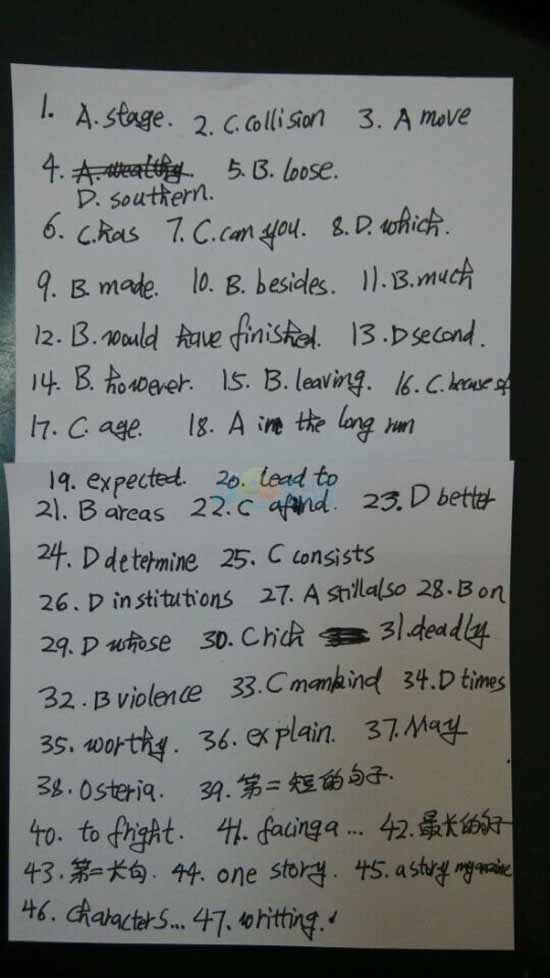 1. A. stage. 2. C. collision 3. A move
4. A. wealthy. 5. B. loose.
D. southern.
6. C. has 7. C. can you. 8. D. which.
9. B. made. 10. B. besides. 11. B. much
12. B. would have finished. 13. D second.
14. B. however. 15. B. leaving. 16. C. because of
17. C. age. 18. A in the long run
19. expected. 20. lead to
21. B areas 22. C and. 23. D better
24. D determine 25. C consists
26. D institutions 27. A still also 28. B on
29. D whose 30. C rich 31. deadly
32. B violence 33. C mankind 34. D times
35. worthy. 36. explain. 37. May
38. Osteria. 39. 第二短的句子.
40. to fright. 41. facing a ... 42. 最长的句子
43. 第二长句. 44. one story. 45. a story my
46. characters... 47. writting.